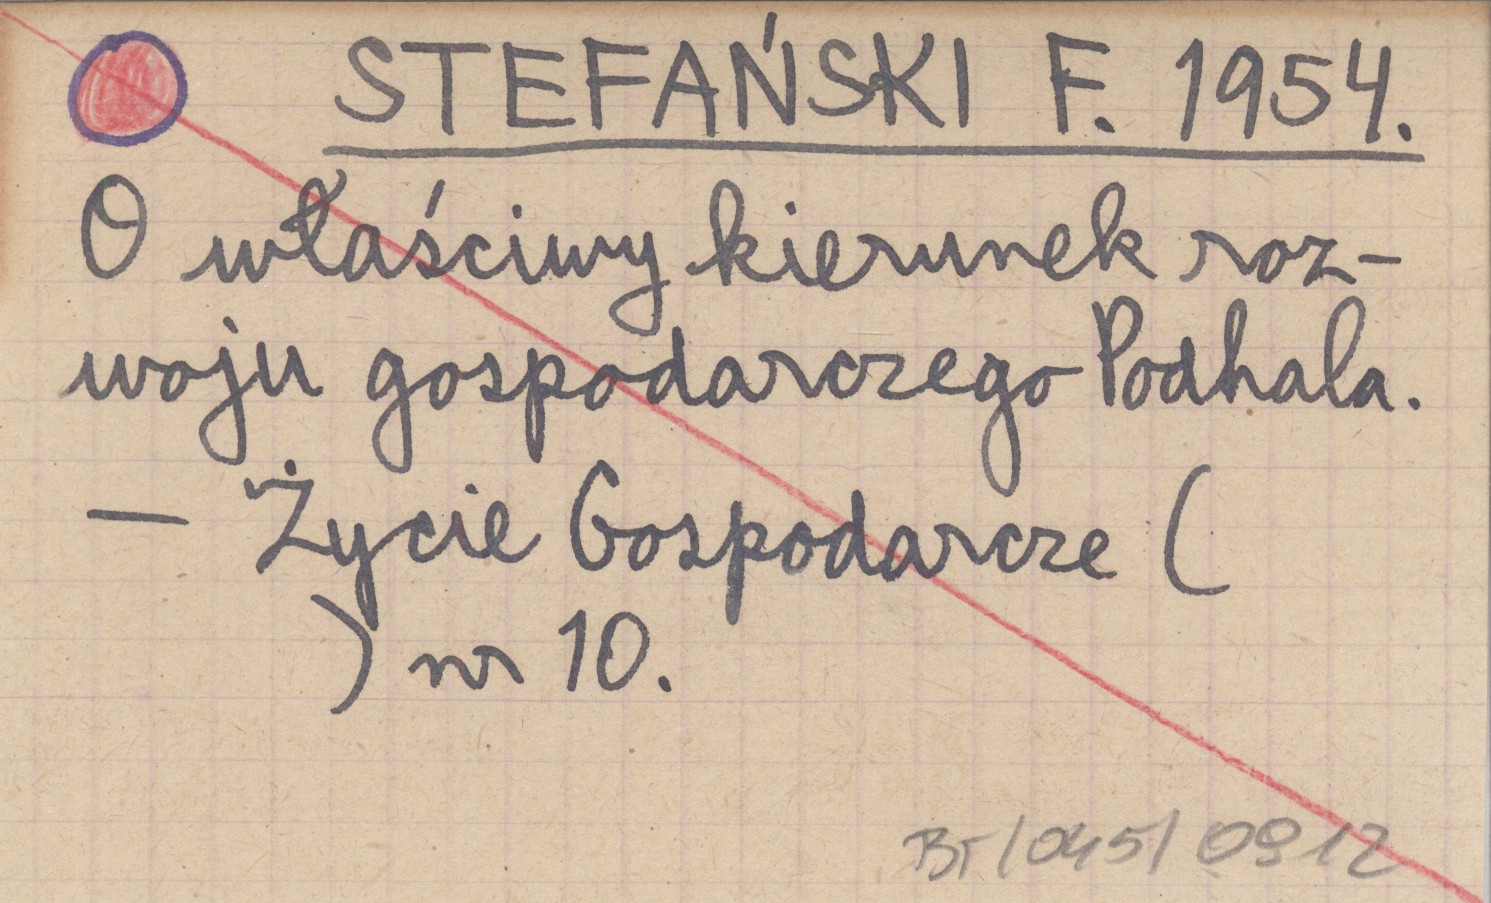 STEFAŃSKI F. 1954.
O właściwy kierunek roz-
woju gospodarczego Podhala.
— Życie Gospodarcze (
) nr 10.
BF/045/0912